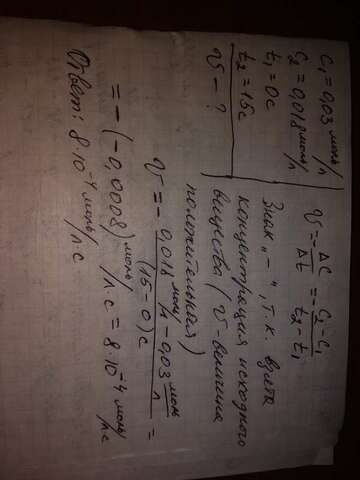 C₁ = 0,03 моль/л
C₂ = 0,018 моль/л
t₁ = 0с
t₂ = 15с
V - ?
V = - ΔC/Δt = - C₂ - C₁ / t₂ - t₁
Знак „-", т.к. взята
концентрация исходного
вещества (V - величина
положительная)
V = - 0,018 моль/л - 0,03 моль/л / (15 - 0) с =
= - (-0,0008) моль/л·с = 8·10⁻⁴ моль/л·с
Ответ: 8·10⁻⁴ моль/л·с